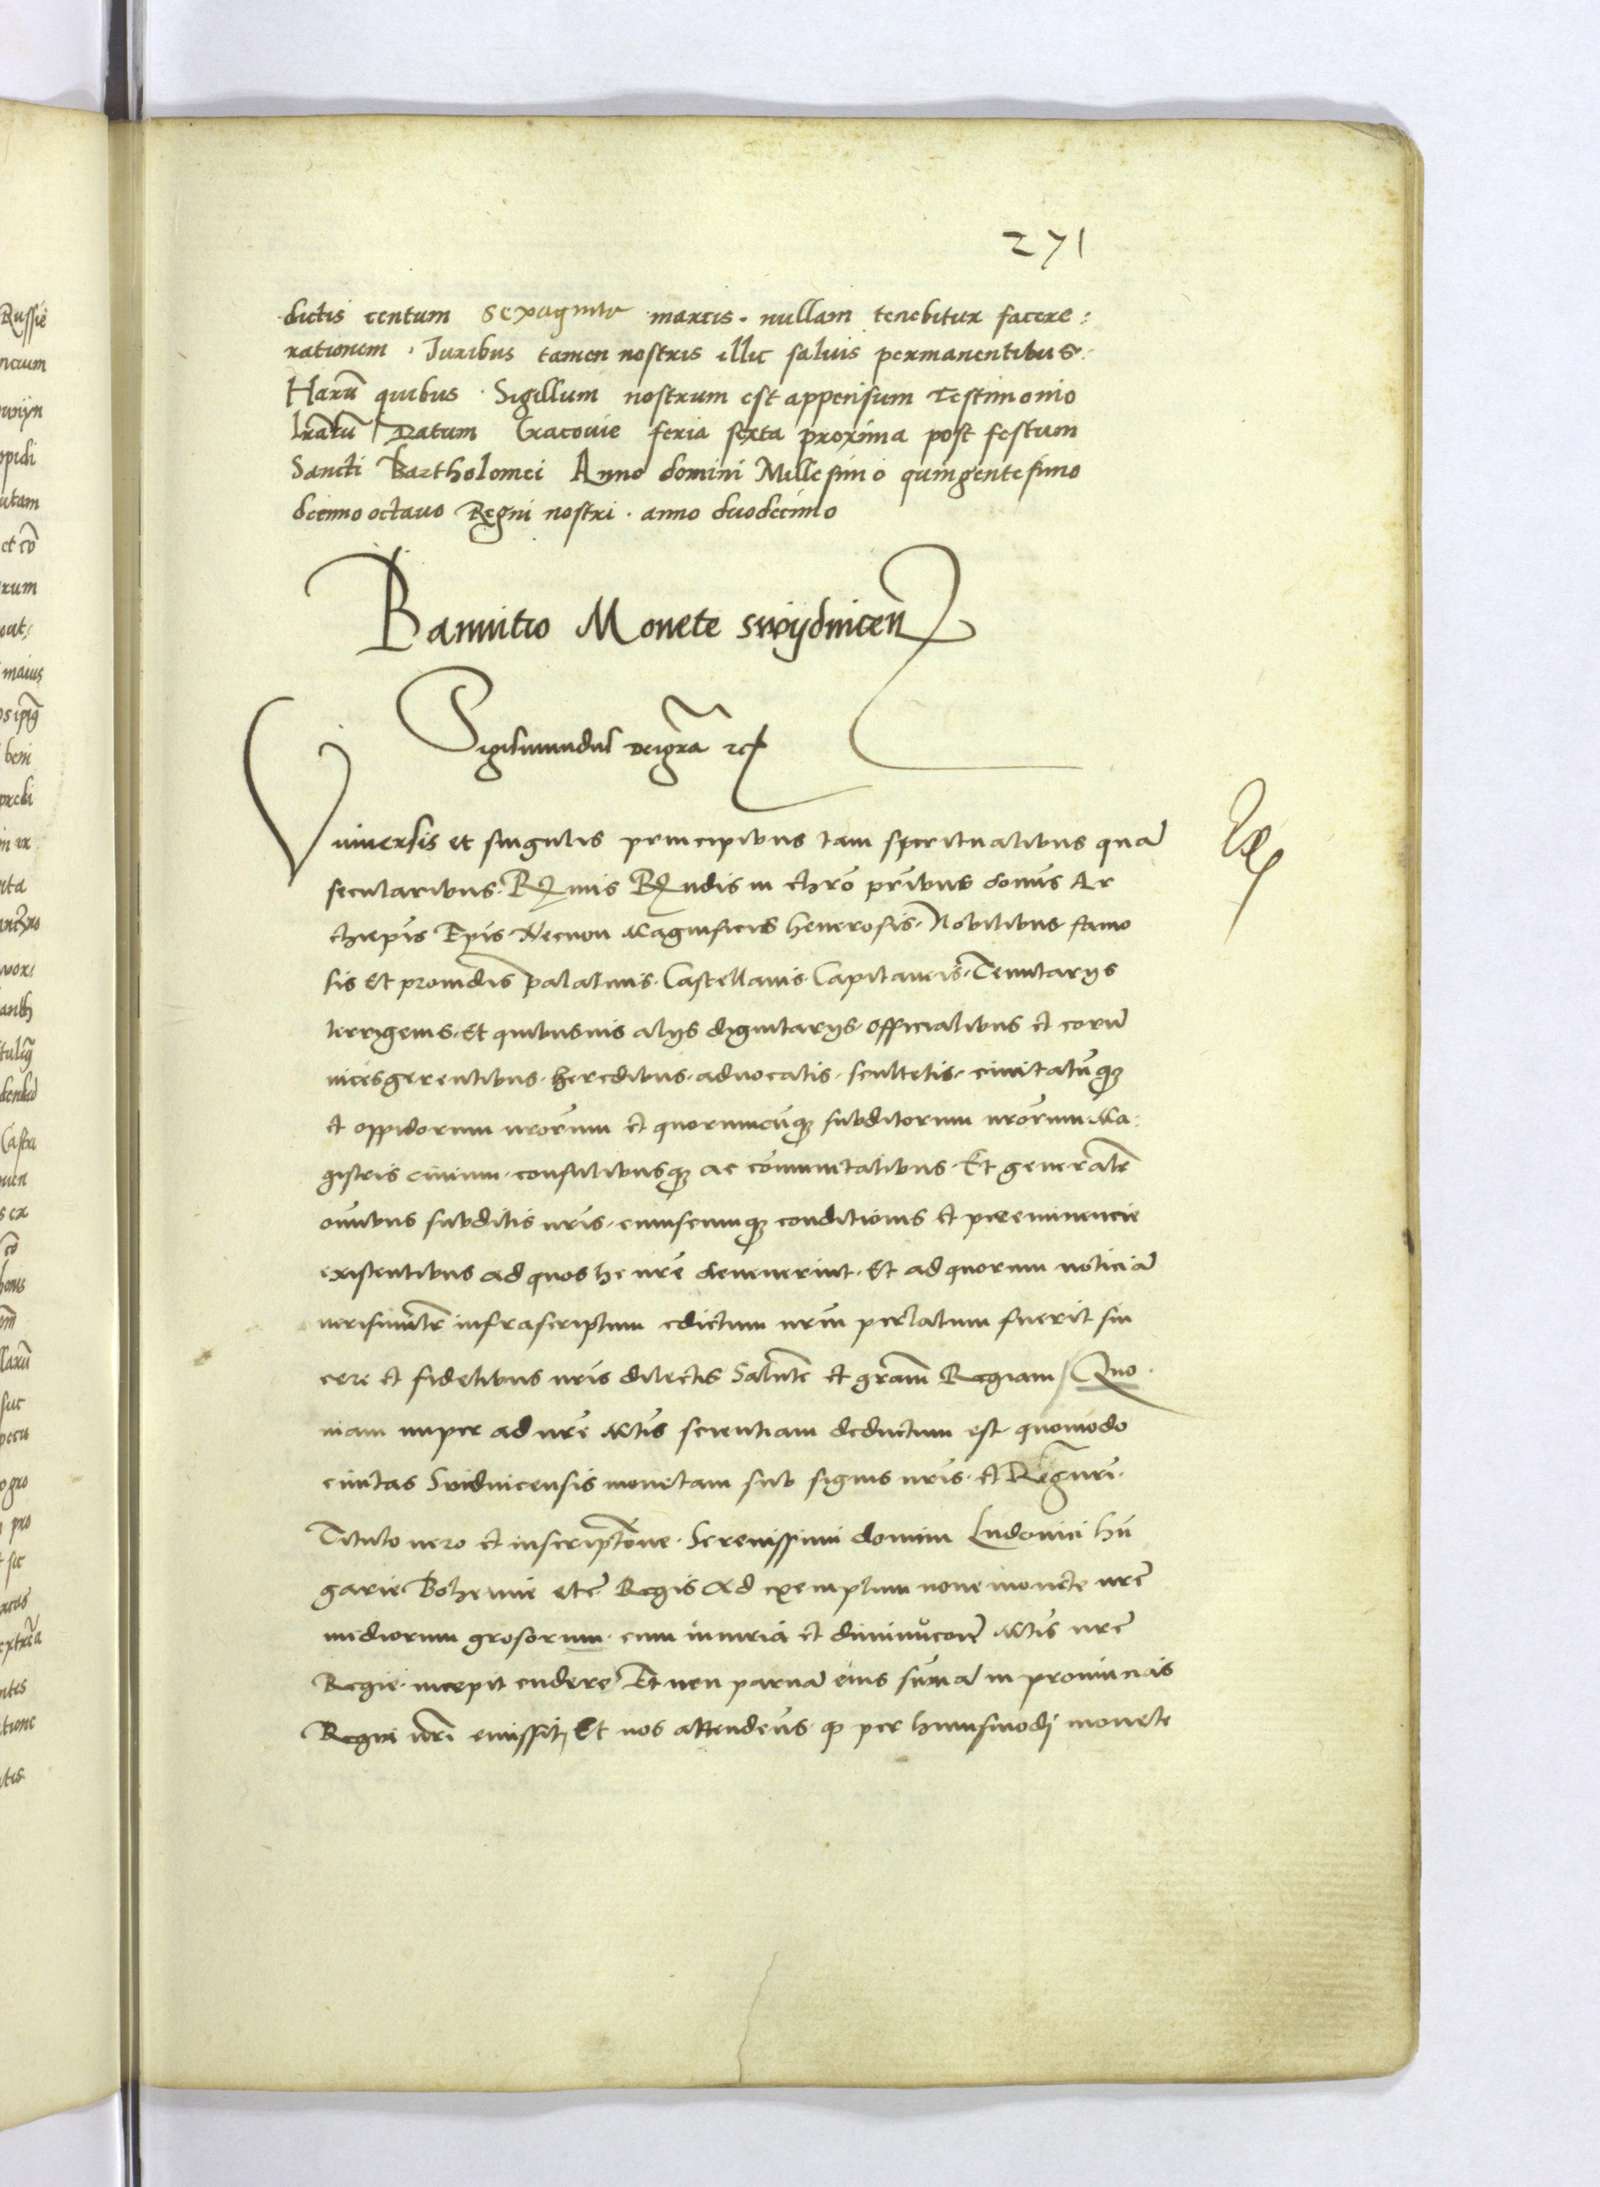 271
dictis centum sexaginta marcis. nullam tenebitur facere:
rationem. Juribus tamen nostris illic salvis permanentibus.
Harū quibus. Sigillum nostrum est appensum Testimonio
lrārū Datum Cracovie feria sexta proxima post festum
Sancti Bartholomei Anno domini Millesimo quingentesimo
decimo octavo Regni nostri. anno duodecimo
Bannitio Monete swijdnicen
Sigismundus dei grā etc
Universis et singulis principibus tam spiritualibus quā
secularibus. Rmis Rndis in chro prībus domīs Ar
chiepīs Epīs Necnon Magnificis Generosis. Nobilibus famo
sis Et providis palatinis. Castellanis. Capitaneis. Tenutarijs
terrigenis. Et quibusvis alijs dignitarijs. officialibus et eorū
vicesgerentibus. heredibus. advocatis. scultetis. civitatūq
et oppidorum nrōrum et quorumcūq subditorum nrōrum Ma.
gistris civium. consulibusq ac cōmunitatibus. Et generalīt
omībus subditis nrīs. cuiuscumq conditionis et preeminencie
existentibus ad quos he nrē devenerint. Et ad quorum noticiā
verisimilīt infrascriptum edictum nrūm perlatum fuerit sin
cere et fidelibus nrīs dilectis Salutē et grām Regiam / Quo.
niam nuper ad nrē Mtīs scientiam deductum est. quomodo
civitas Svidnicensis monetam sub signis nrīs. et Regni nrī.
Titulo vero et inscriptōne. Serenissimi domini Ludovici hū
garie Bohemie etc Regis Ad exemplum nove monete nrē
mediorum grosorum. cum iniuria et diminucōne Mtīs nrē
Regie. incepit cudere Et non parvā eius sūmā in provinciis
Regni nrī emissit, Et nos attendens. q per huiusmodj monete